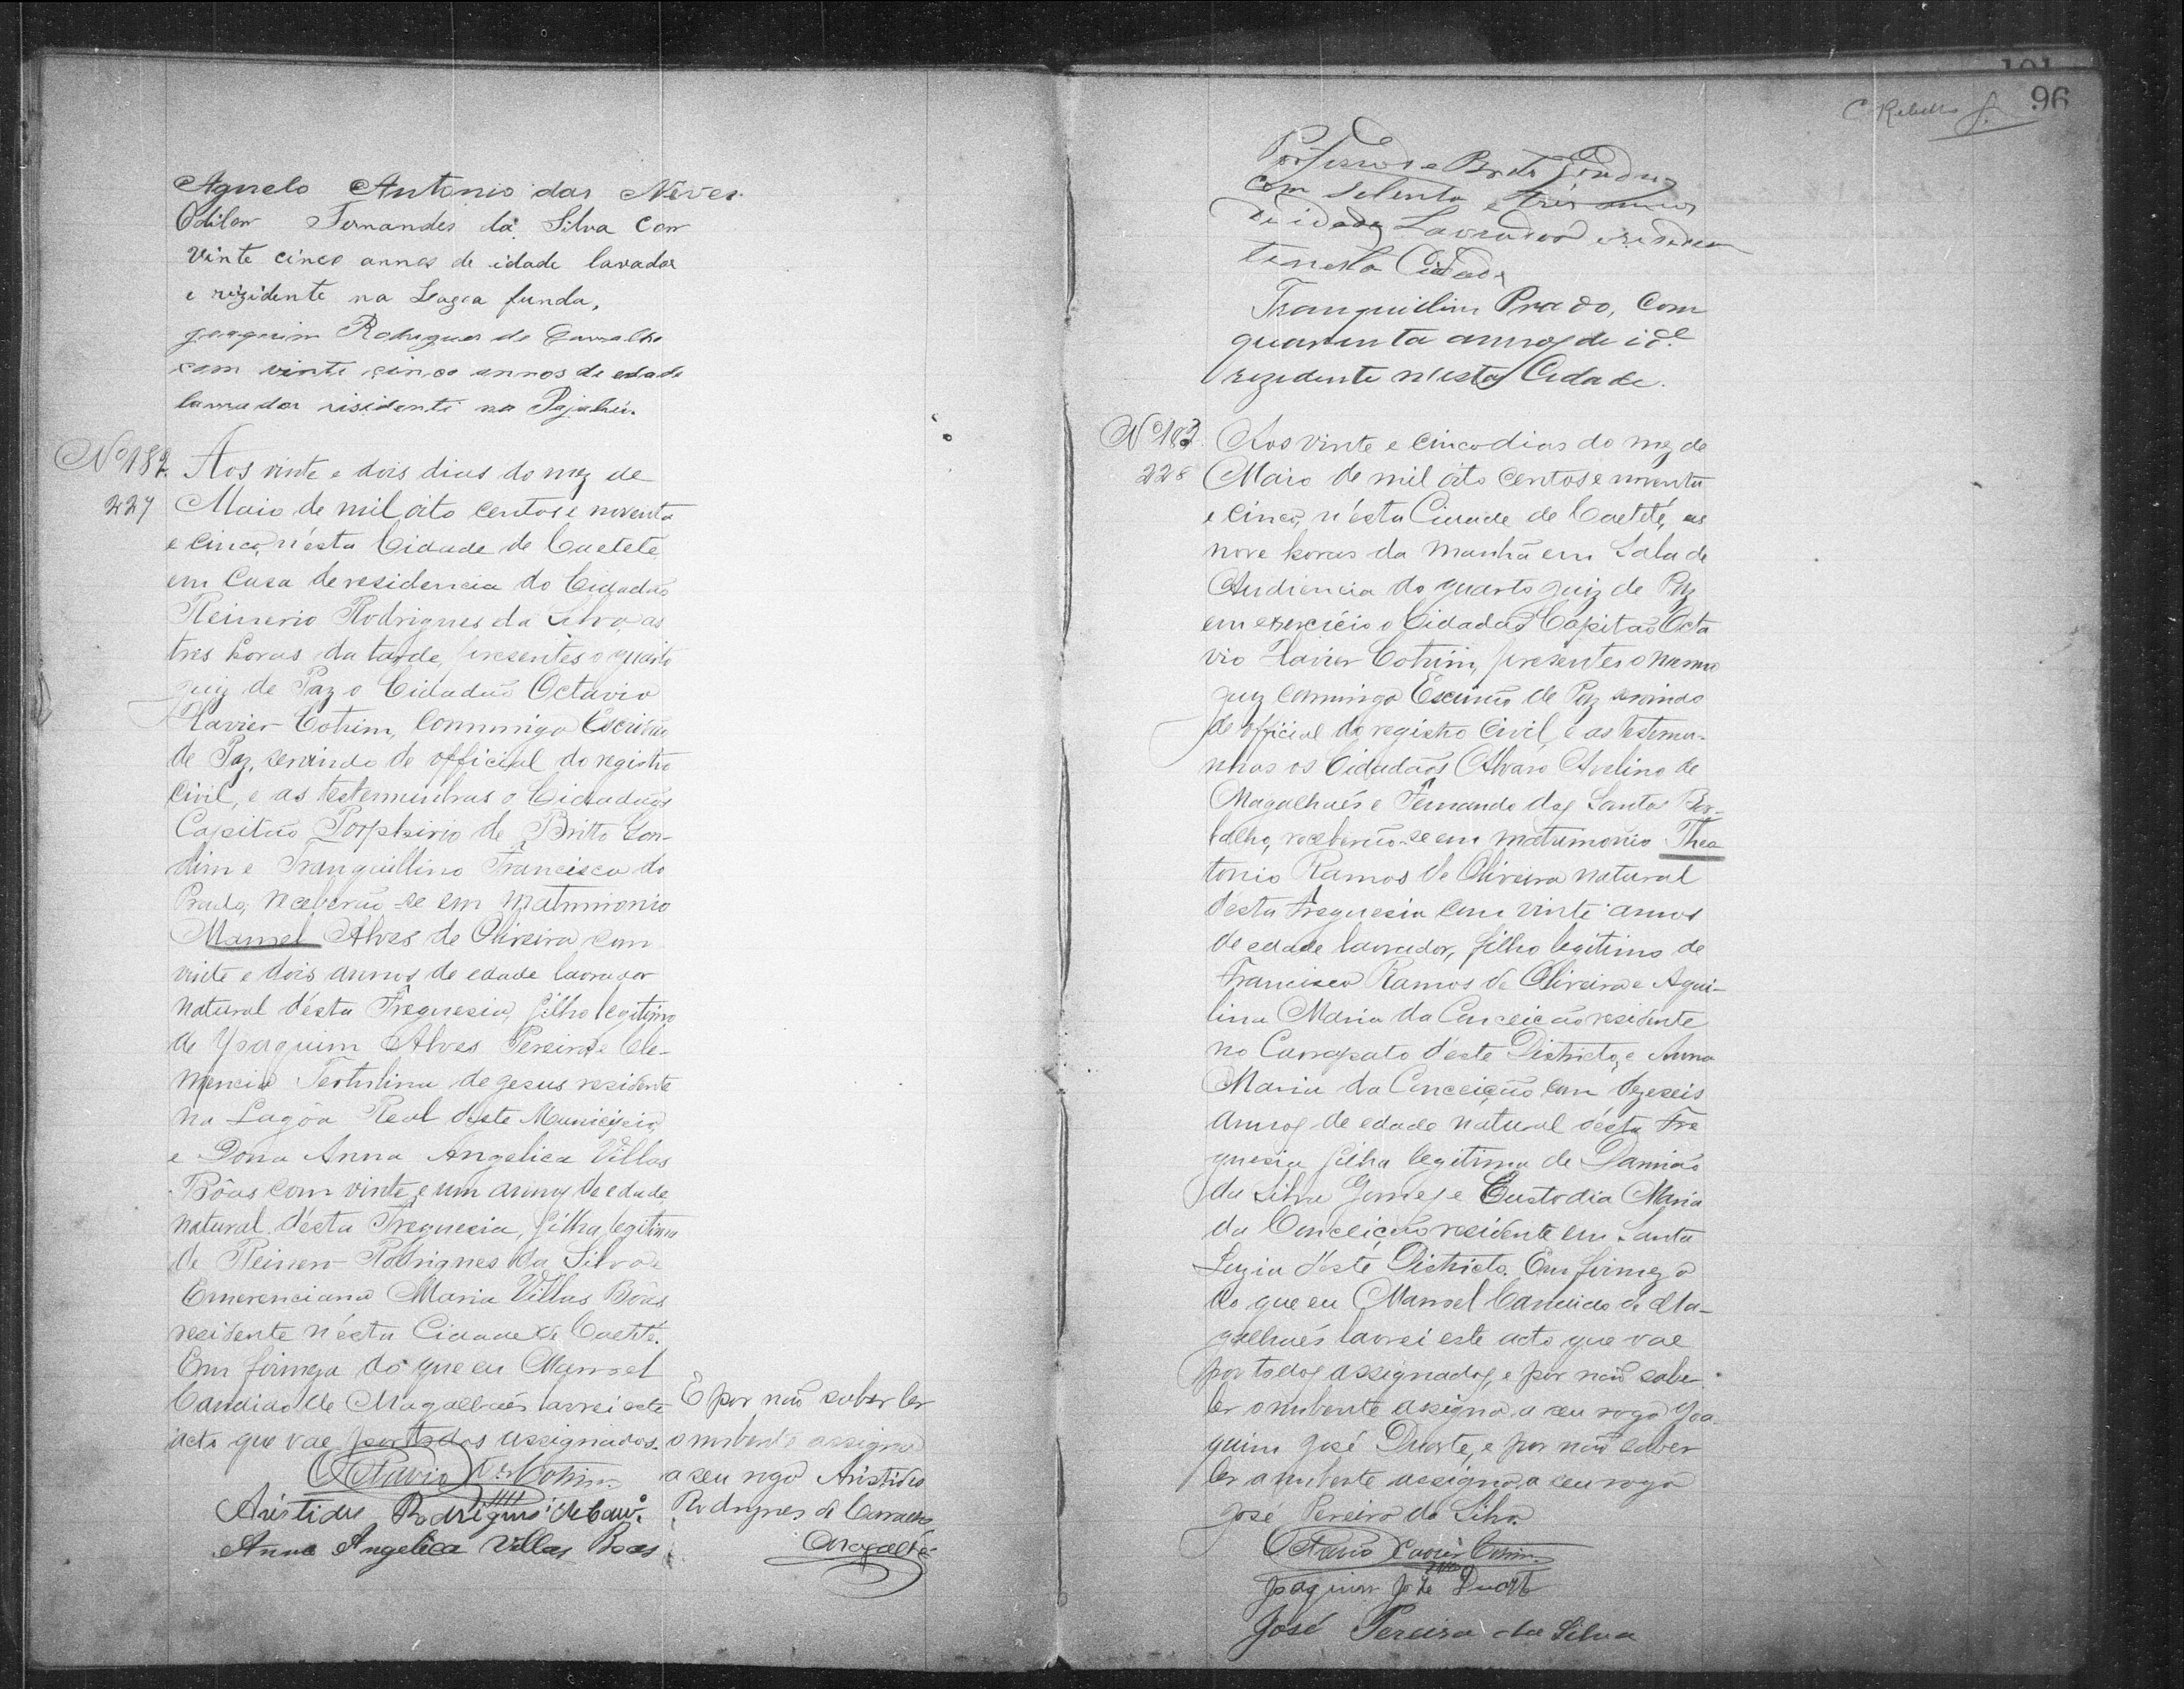 Agnelo Antonio das Neves
Odilon Fernandes da Silva Com
vinte cinco annos de idade lavrador
e rezidente na Lagoa funda,
Joaquim Rodrigues de Carvalho
com vinte cinco annos de edade
lavrador risidenti na Pajehú.
Nº 182. Aos vinte e dois dias do mez de
227 Maio de mil oito centos e noventa
e cinco, n'ésta Cidade de Caeteté
em Casa de residencia do Cidadão
Reinerio Rodrigues da Silva, as
tres horas da tarde, presentes o quarto
juiz de Paz o Cidadão Octavio
Xavier Cotrim, commigo Escrivão
de Paz, servindo de official do registro
Civil, e as testemunhas o Cidadãos
Capitão Porphirio de Britto Gon-
dim e Tranquillino Francisco do
Prado, receberão-se em matrimonio
Manoel Alves de Oliveira com
vinte e dois annos de edade lavrador
natural d'ésta Freguesia, filho legitimo
de Joaquim Alves Pereira e Cle-
mencia Tertulina de Jesus residente
na Lagôa Real deste Municipio,
e Dona Anna Angelica Villas
Bôas com vinte e um annos de edade
natural d'ésta Freguesia, filha legitima
de Reinero Rodrigues da Silva e
Emerenciana Maria Villas Bôas
residente n'ésta Cidade de Caeteté.
Em firmeza do que eu Manoel
Candido de Magalhaés lavrei este
acto que vae por todos assignados.
E por não saber ler
o nubente assigna
a seu rogo Aristides
Rodrigues de Carvalho
Octavio Xer Cotrim
Aristides Rodrigues de Carvº
Anna Angelica Villas Boas
96
com setenta e três annos
de idade Lavrador residen
te nesta Cidade
Tranquillino Prado, Com
quarenta annos de ide
rezidente nesta Cidade.
Nº 183 Aos vinte e cinco dias do mez de
228 Maio de mil oito centos e noventa
e cinco, n'ésta Cidade de Caeteté, as
nove horas da manhã em Sala de
Audiencia do quarto juiz de Paz
em exercicio o Cidadão Capitão Octa
vio Xavier Cotrim, presentes o mesmo
juiz commigo Escrivão de Paz servindo
de official do registro Civil, e as testemu-
nhas os Cidadãos Alvaro Avelino de
Magalhaés e Fernando dos Santos
receberão-se em matrimonio Theo
tonio Ramos de Oliveira natural
d'ésta freguesia com vinte annos
de edade lavrador, filho legitimo de
Francisco Ramos de Oliveira e Aqui-
lina Maria da Conceição residente
no Carrapato d'éste Districto, e Anna
Maria da Conceição com dezeseis
annos de edade natural d'ésta Fre
guesia filha legitima de Damião
da Silva Gomes e Custodia Maria
da Conceição residente em Santa
Luzia d'éste Districto. Em firmeza
do que eu Manoel Candido de Ma-
galhaés lavrei este acto que vae
por todos assignados, e por não saber
ler o nubente assigna a seu rogo Joa
quim José Duarte, e por não saber
ler a nubente assigna a seu rogo
José Pereira da Silva.
Octavio Xavier Cotrim
Joaquim José Duarte
José Pereira da Silva